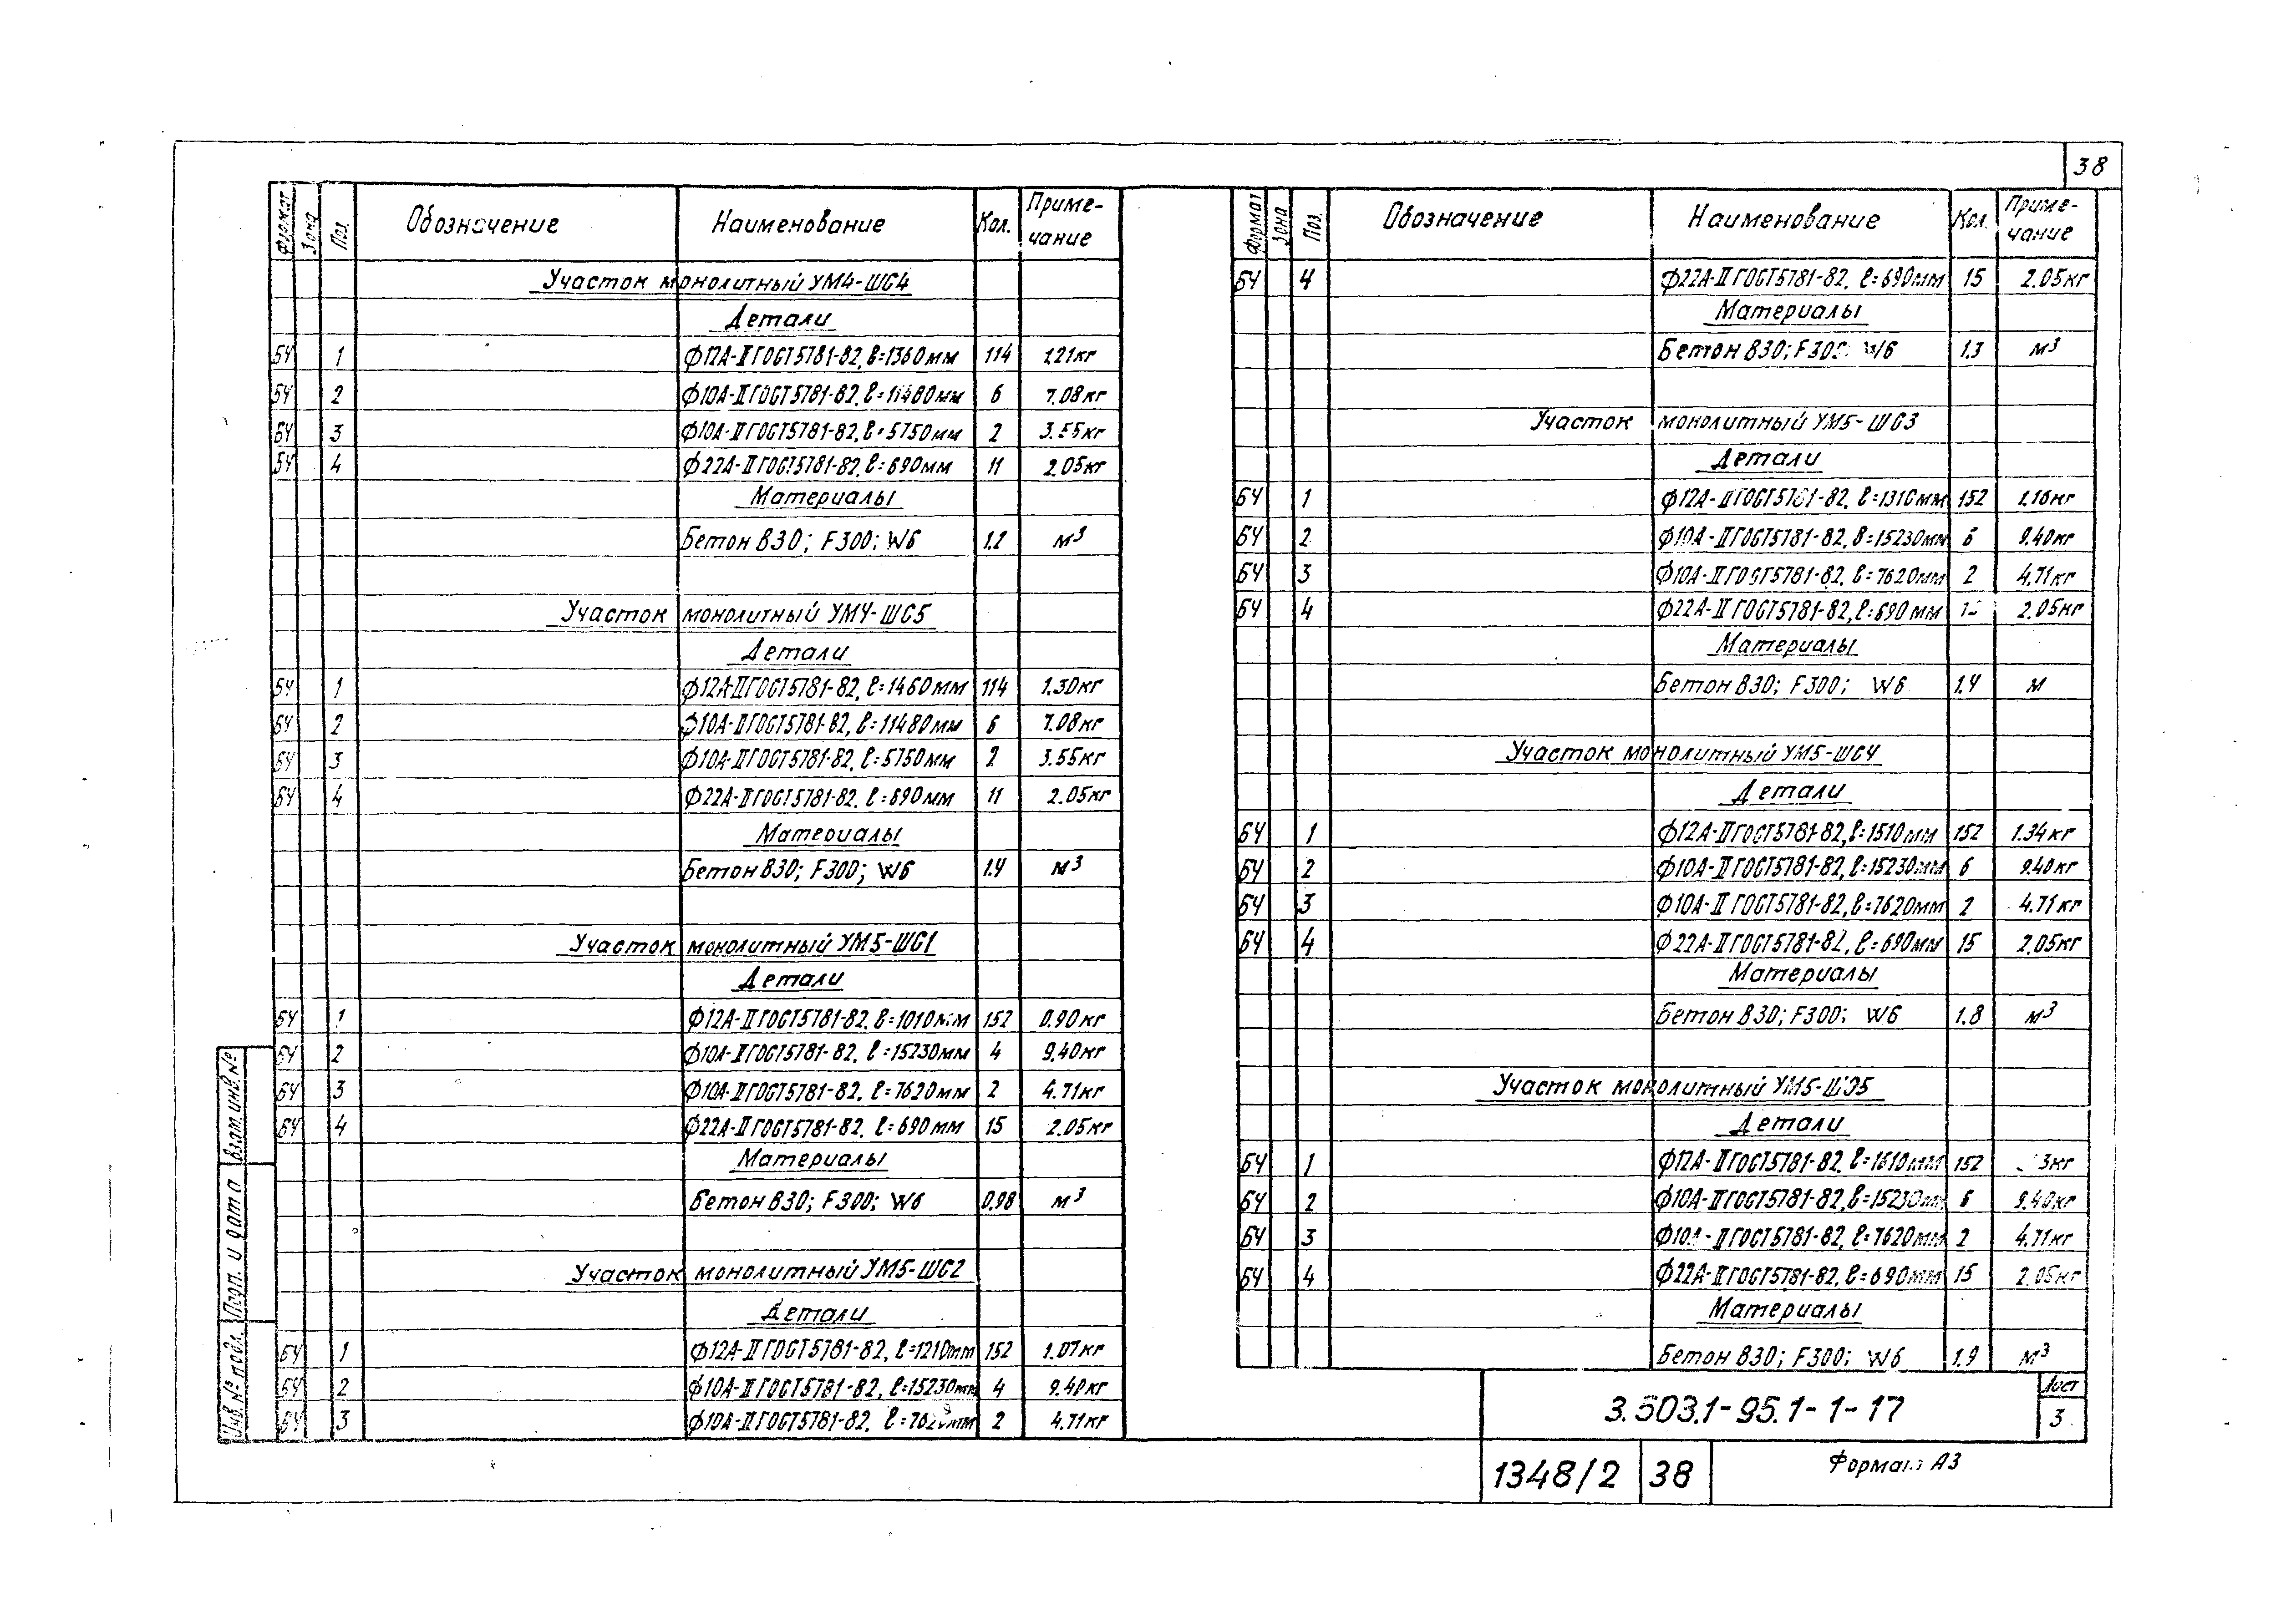 38
Формат Зона Поз. Обозначение Наименование Кол. Примечание
Участок монолитный УМ4-ШС4
Детали
БЧ 1 Ф12А-II ГОСТ 5781-82, ℓ=1360мм 114 1.21кг
БЧ 2 Ф10А-II ГОСТ 5781-82, ℓ=11480мм 6 7.08кг
БЧ 3 Ф10А-II ГОСТ 5781-82, ℓ=5750мм 2 3.55кг
БЧ 4 Ф22А-II ГОСТ 5781-82, ℓ=690мм 11 2.05кг
Материалы
Бетон В30; F300; W6 1.2 м³
Участок монолитный УМ4-ШС5
Детали
БЧ 1 Ф12А-II ГОСТ 5781-82, ℓ=1460мм 114 1.30кг
БЧ 2 Ф10А-II ГОСТ 5781-82, ℓ=11480мм 6 7.08кг
БЧ 3 Ф10А-II ГОСТ 5781-82, ℓ=5750мм 2 3.55кг
БЧ 4 Ф22А-II ГОСТ 5781-82, ℓ=690мм 11 2.05кг
Материалы
Бетон В30; F300; W6 1.4 м³
Участок монолитный УМ5-ШС1
Детали
БЧ 1 Ф12А-II ГОСТ 5781-82, ℓ=1010мм 152 0.90кг
БЧ 2 Ф10А-II ГОСТ 5781-82, ℓ=15230мм 4 9.40кг
БЧ 3 Ф10А-II ГОСТ 5781-82, ℓ=7620мм 2 4.71кг
БЧ 4 Ф22А-II ГОСТ 5781-82, ℓ=690мм 15 2.05кг
Материалы
Бетон В30; F300; W6 0.98 м³
Участок монолитный УМ5-ШС2
Детали
БЧ 1 Ф12А-II ГОСТ 5781-82, ℓ=1210мм 152 1.07кг
БЧ 2 Ф10А-II ГОСТ 5781-82, ℓ=15230мм 4 9.40кг
БЧ 3 Ф10А-II ГОСТ 5781-82, ℓ=7620мм 2 4.71кг
Формат Зона Поз. Обозначение Наименование Кол. Примечание
БЧ 4 Ф22А-II ГОСТ 5781-82, ℓ=690мм 15 2.05кг
Материалы
Бетон В30; F300; W6 1.3 м³
Участок монолитный УМ5-ШС3
Детали
БЧ 1 Ф12А-II ГОСТ 5781-82, ℓ=1310мм 152 1.16кг
БЧ 2 Ф10А-II ГОСТ 5781-82, ℓ=15230мм 6 9.40кг
БЧ 3 Ф10А-II ГОСТ 5781-82, ℓ=7620мм 2 4.71кг
БЧ 4 Ф22А-II ГОСТ 5781-82, ℓ=690мм 2.05кг
Материалы
Бетон В30; F300; W6 1.4 м
Участок монолитный УМ5-ШС4
Детали
БЧ 1 Ф12А-II ГОСТ 5781-82, ℓ=1510мм 152 1.34кг
БЧ 2 Ф10А-II ГОСТ 5781-82, ℓ=15230мм 6 9.40кг
БЧ 3 Ф10А-II ГОСТ 5781-82, ℓ=7620мм 2 4.71кг
БЧ 4 Ф22А-II ГОСТ 5781-82, ℓ=690мм 15 2.05кг
Материалы
Бетон В30; F300; W6 1.8 м³
Участок монолитный УМ5-ШС5
Детали
БЧ 1 Ф12А-II ГОСТ 5781-82, ℓ=1610мм 152
БЧ 2 Ф10А-II ГОСТ 5781-82, ℓ=15230мм 6 9.40кг
БЧ 3 Ф10А-II ГОСТ 5781-82, ℓ=7620мм 2 4.71кг
БЧ 4 Ф22А-II ГОСТ 5781-82, ℓ=690мм 15 2.05кг
Материалы
Бетон В30; F300; W6 1.9 м³
Взам. инв. №
Подп. и дата
Инв. № подл.
3.503.1-95.1-1-17
Лист
3
1348/2 38
Формат А3